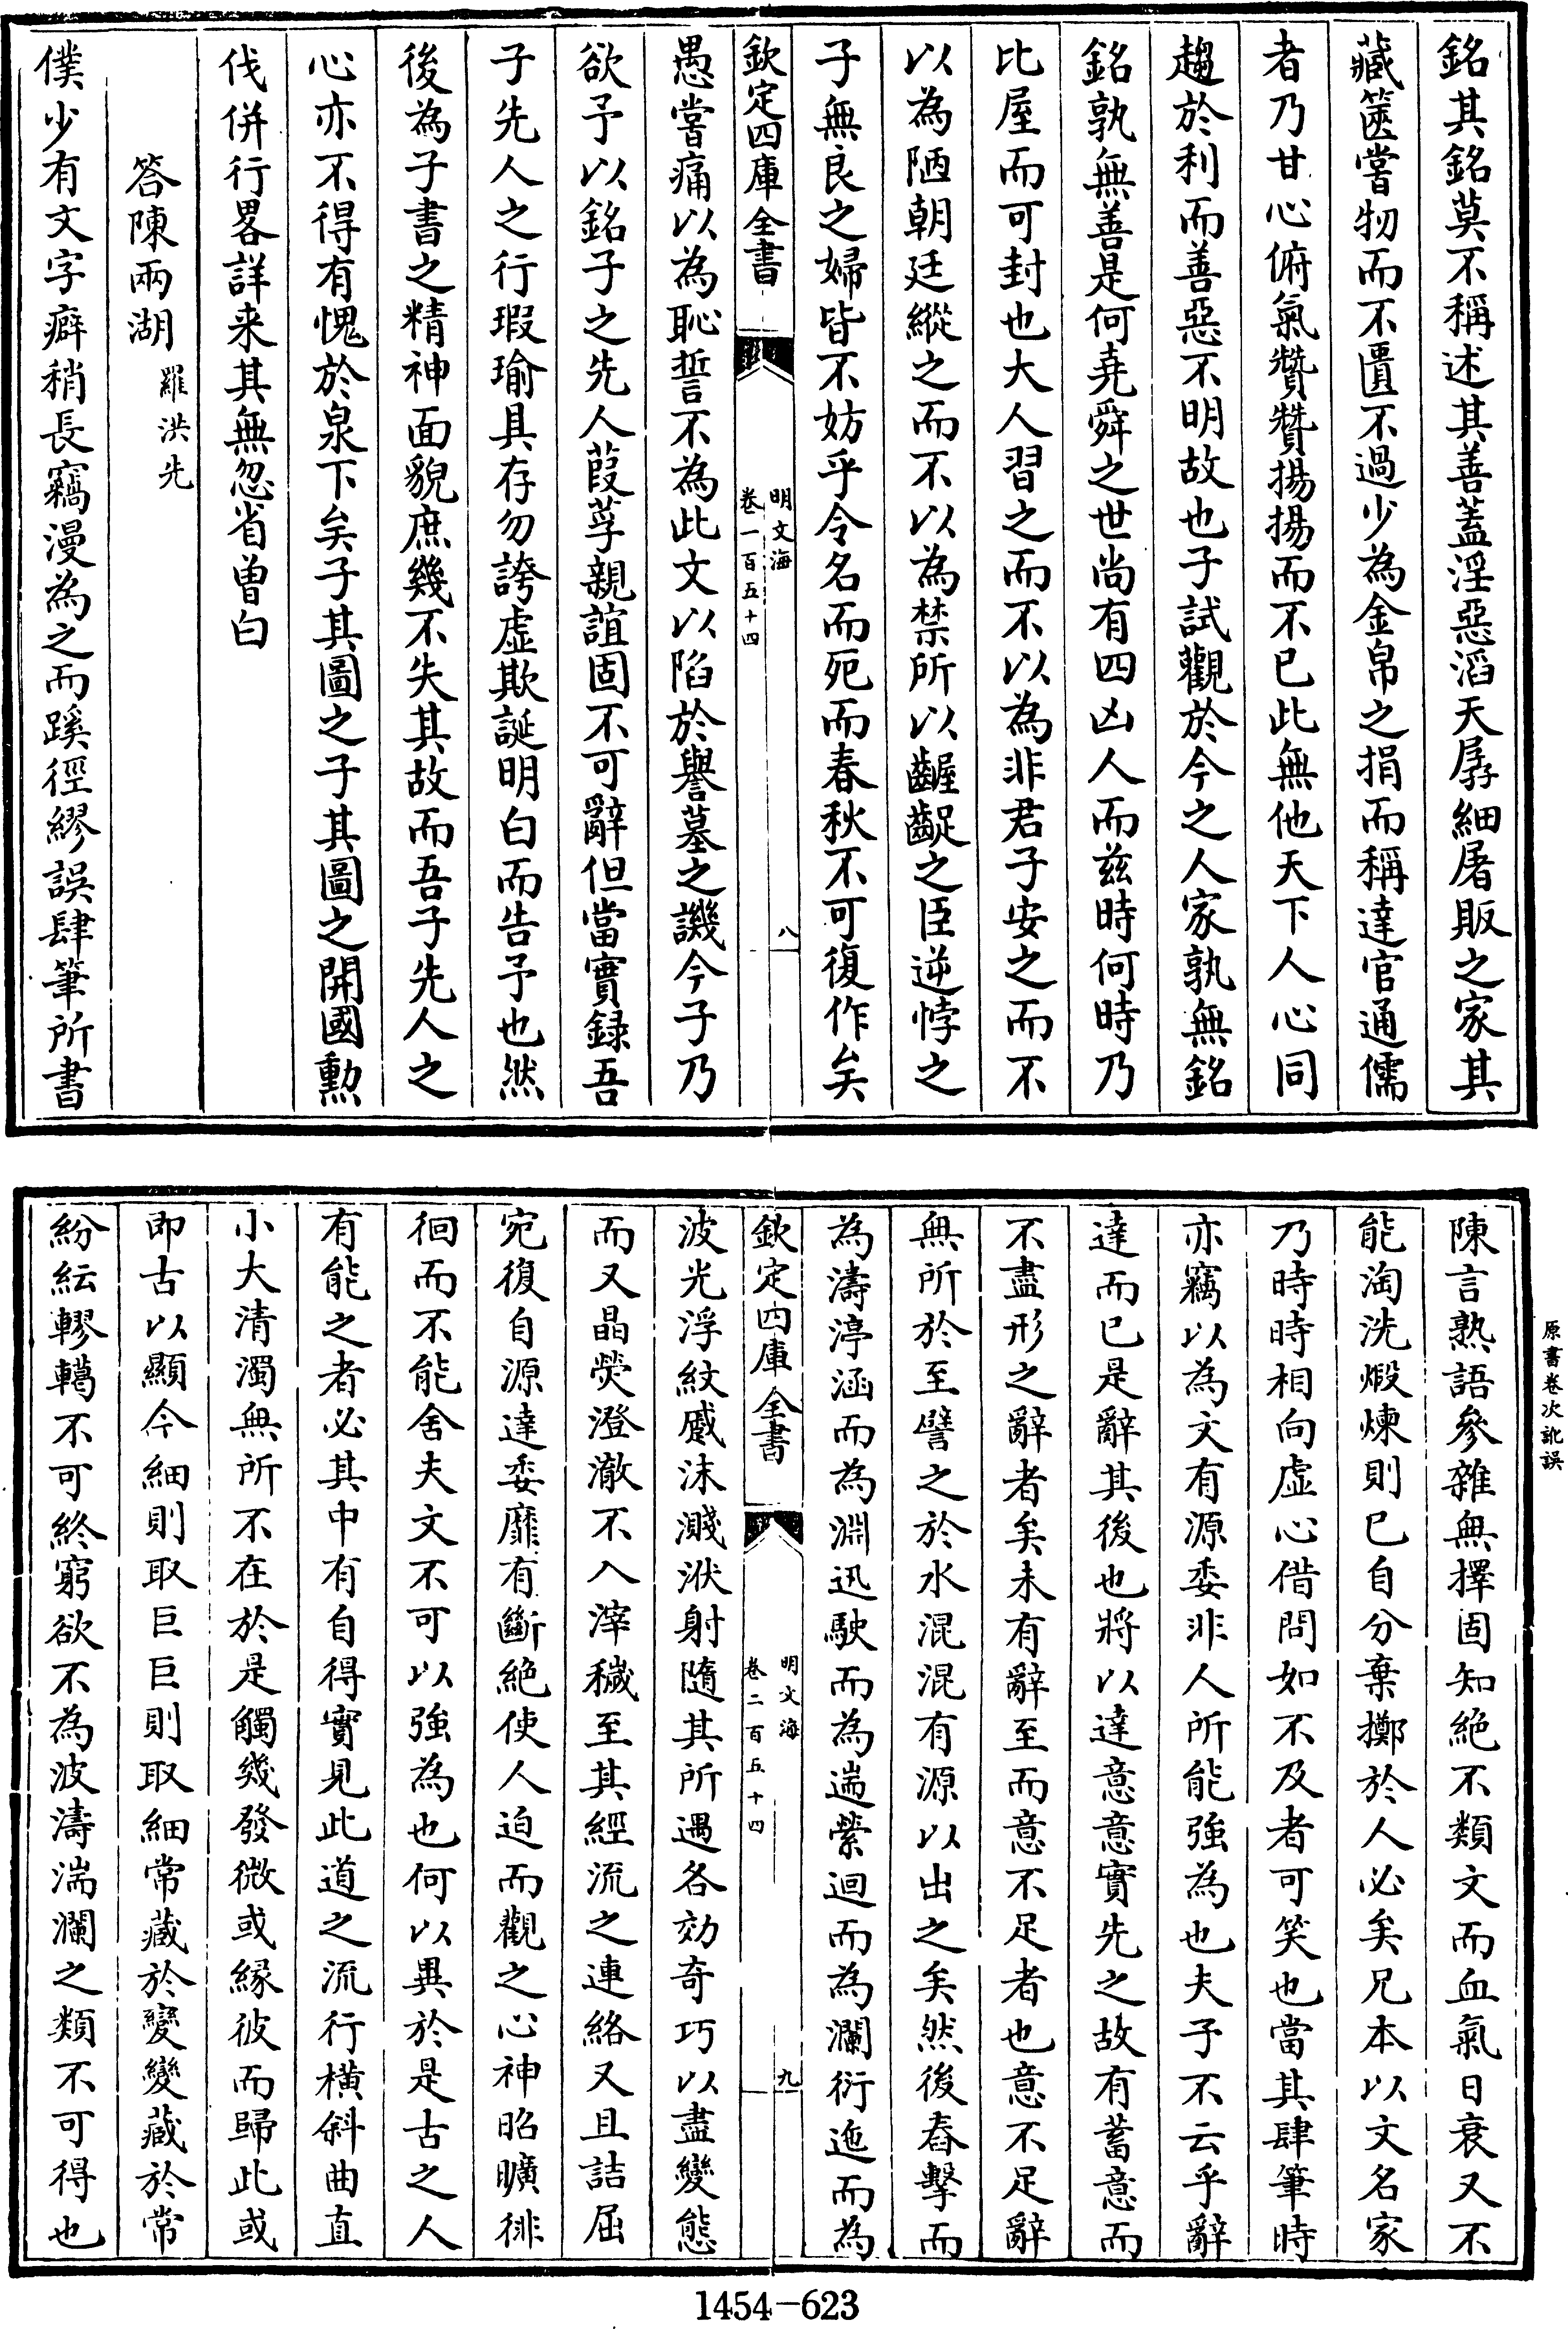 銘其銘莫不稱述其善葢淫惡滔天孱細屠販之家其
藏篋嘗物而不匱不過少為金帛之捐而稱達官通儒
者乃甘心俯氣贊贊揚揚而不已此無他天下人心同
趨於利而善惡不明故也子試觀於今之人家孰無銘
銘孰無善是何堯舜之世尚有四凶人而兹時何時乃
比屋而可封也大人習之而不以為非君子安之而不
以為陋朝廷縱之而不以為禁所以齷齪之臣逆悖之
子無良之婦皆不妨乎令名而死而春秋不可復作矣
欽定四庫全書
明文海
卷一百五十四
八
愚嘗痛以為恥誓不為此文以陷於譽墓之譏今子乃
欲予以銘子之先人葭莩親誼固不可辭但當實録吾
子先人之行瑕瑜具存勿誇虛欺誕明白而告予也然
後為子書之精神面貌庶幾不失其故而吾子先人之
心亦不得有愧於泉下矣子其圖之子其圖之開國勲
伐併行畧詳来其無忽省曽白
答陳兩湖 羅洪先
僕少有文字癖稍長竊漫為之而蹊徑繆誤肆筆所書
原書卷次訛誤
陳言熟語參雜無擇固知絶不類文而血氣日衰又不
能淘洗煅煉則已自分棄擲於人必矣兄本以文名家
乃時時相向虛心借問如不及者可笑也當其肆筆時
亦竊以為文有源委非人所能強為也夫子不云乎辭
達而已是辭其後也將以達意意實先之故有蓄意而
不盡形之辭者矣未有辭至而意不足者也意不足辭
無所於至譬之於水混混有源以出之矣然後舂擊而
為濤渟涵而為淵迅駛而為湍縈迴而為瀾衍迤而為
欽定四庫全書
明文海
卷二百五十四
九
波光浮紋蹙沫濺洑射隨其所遇各効奇巧以盡變態
而又晶熒澄澈不入滓穢至其經流之連絡又且詰屈
宛復自源達委靡有斷絶使人迫而觀之心神昭曠徘
徊而不能舍夫文不可以強為也何以異於是古之人
有能之者必其中有自得實見此道之流行橫斜曲直
小大清濁無所不在於是觸幾發微或緣彼而歸此或
即古以顯今細則取巨巨則取細常藏於變變藏於常
紛紜轇轕不可終窮欲不為波濤湍瀾之類不可得也
1454—623